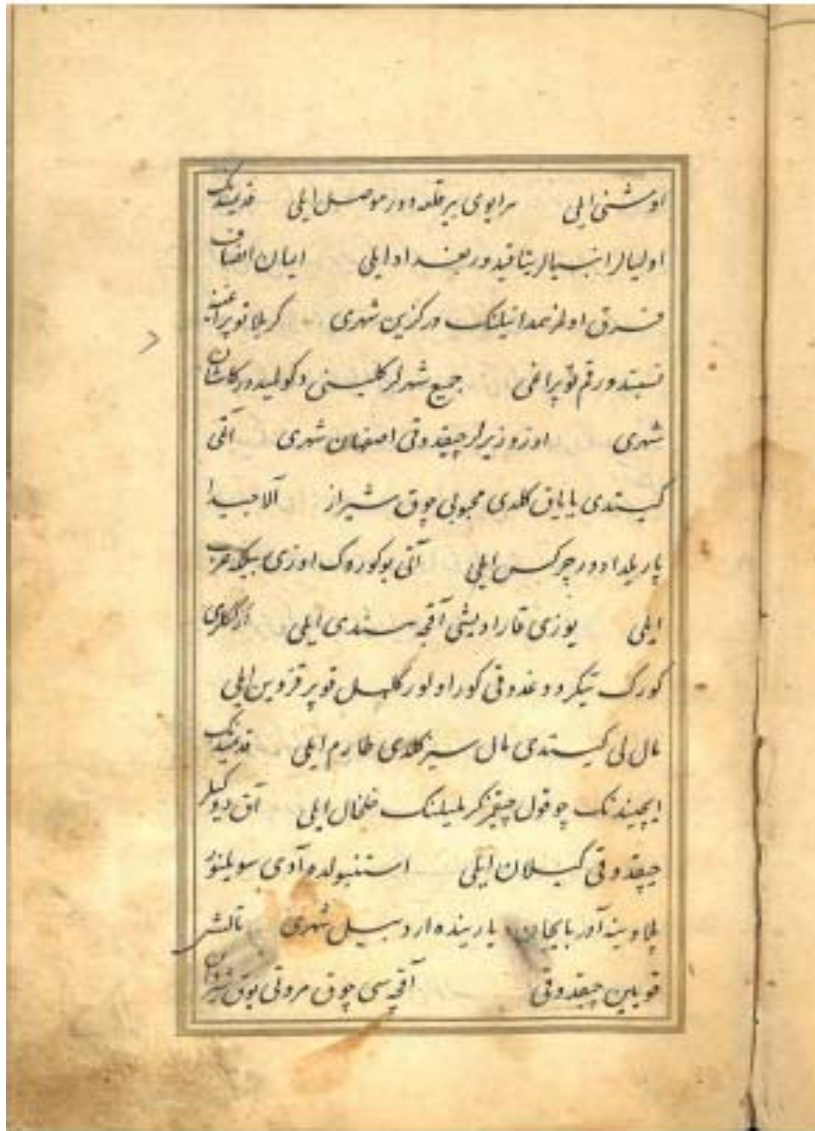 اوشنی ایلی مرایوی بیر قلعه دور موصل ایلی قدیمدنک
اولیالر انبیالر یتاقیدور بغداد ایلی ایمان انصاف
فرق اولمز همدانیلنک درکزین شهری کربلا توپراغنه
نسبتدور قم توپراغی جمیع شهرلر کلینی دکولمیدور کاشان
شهری اوزوزیرلر چیقدوقی اصفهان شهری آتلی
کیتدی یایاق کلدی محبوبی چوق شیراز آلا
پاریلدادور چرکس ایلی آتی یوکورک اوزی عرب
ایلی یوزی قارا دیشی آقجه سندی ایلی
کورک تیکر دوغدوقی کور اولور کلهل قوپر قزوین ایلی
مال لی کیتدی مال سیز کلدی طارم ایلی قدیمدنک
ایچیندنک چوقول چیقر خلخال ایلی آق دوکیلر
چیقدوقی کیلان ایلی استنبولده آدی سویلنور
آدربایجان یارینده اردبیل شهری تالش
قوبلین چیقدوقی آقچه سی چوق مروتی یوق شیروان